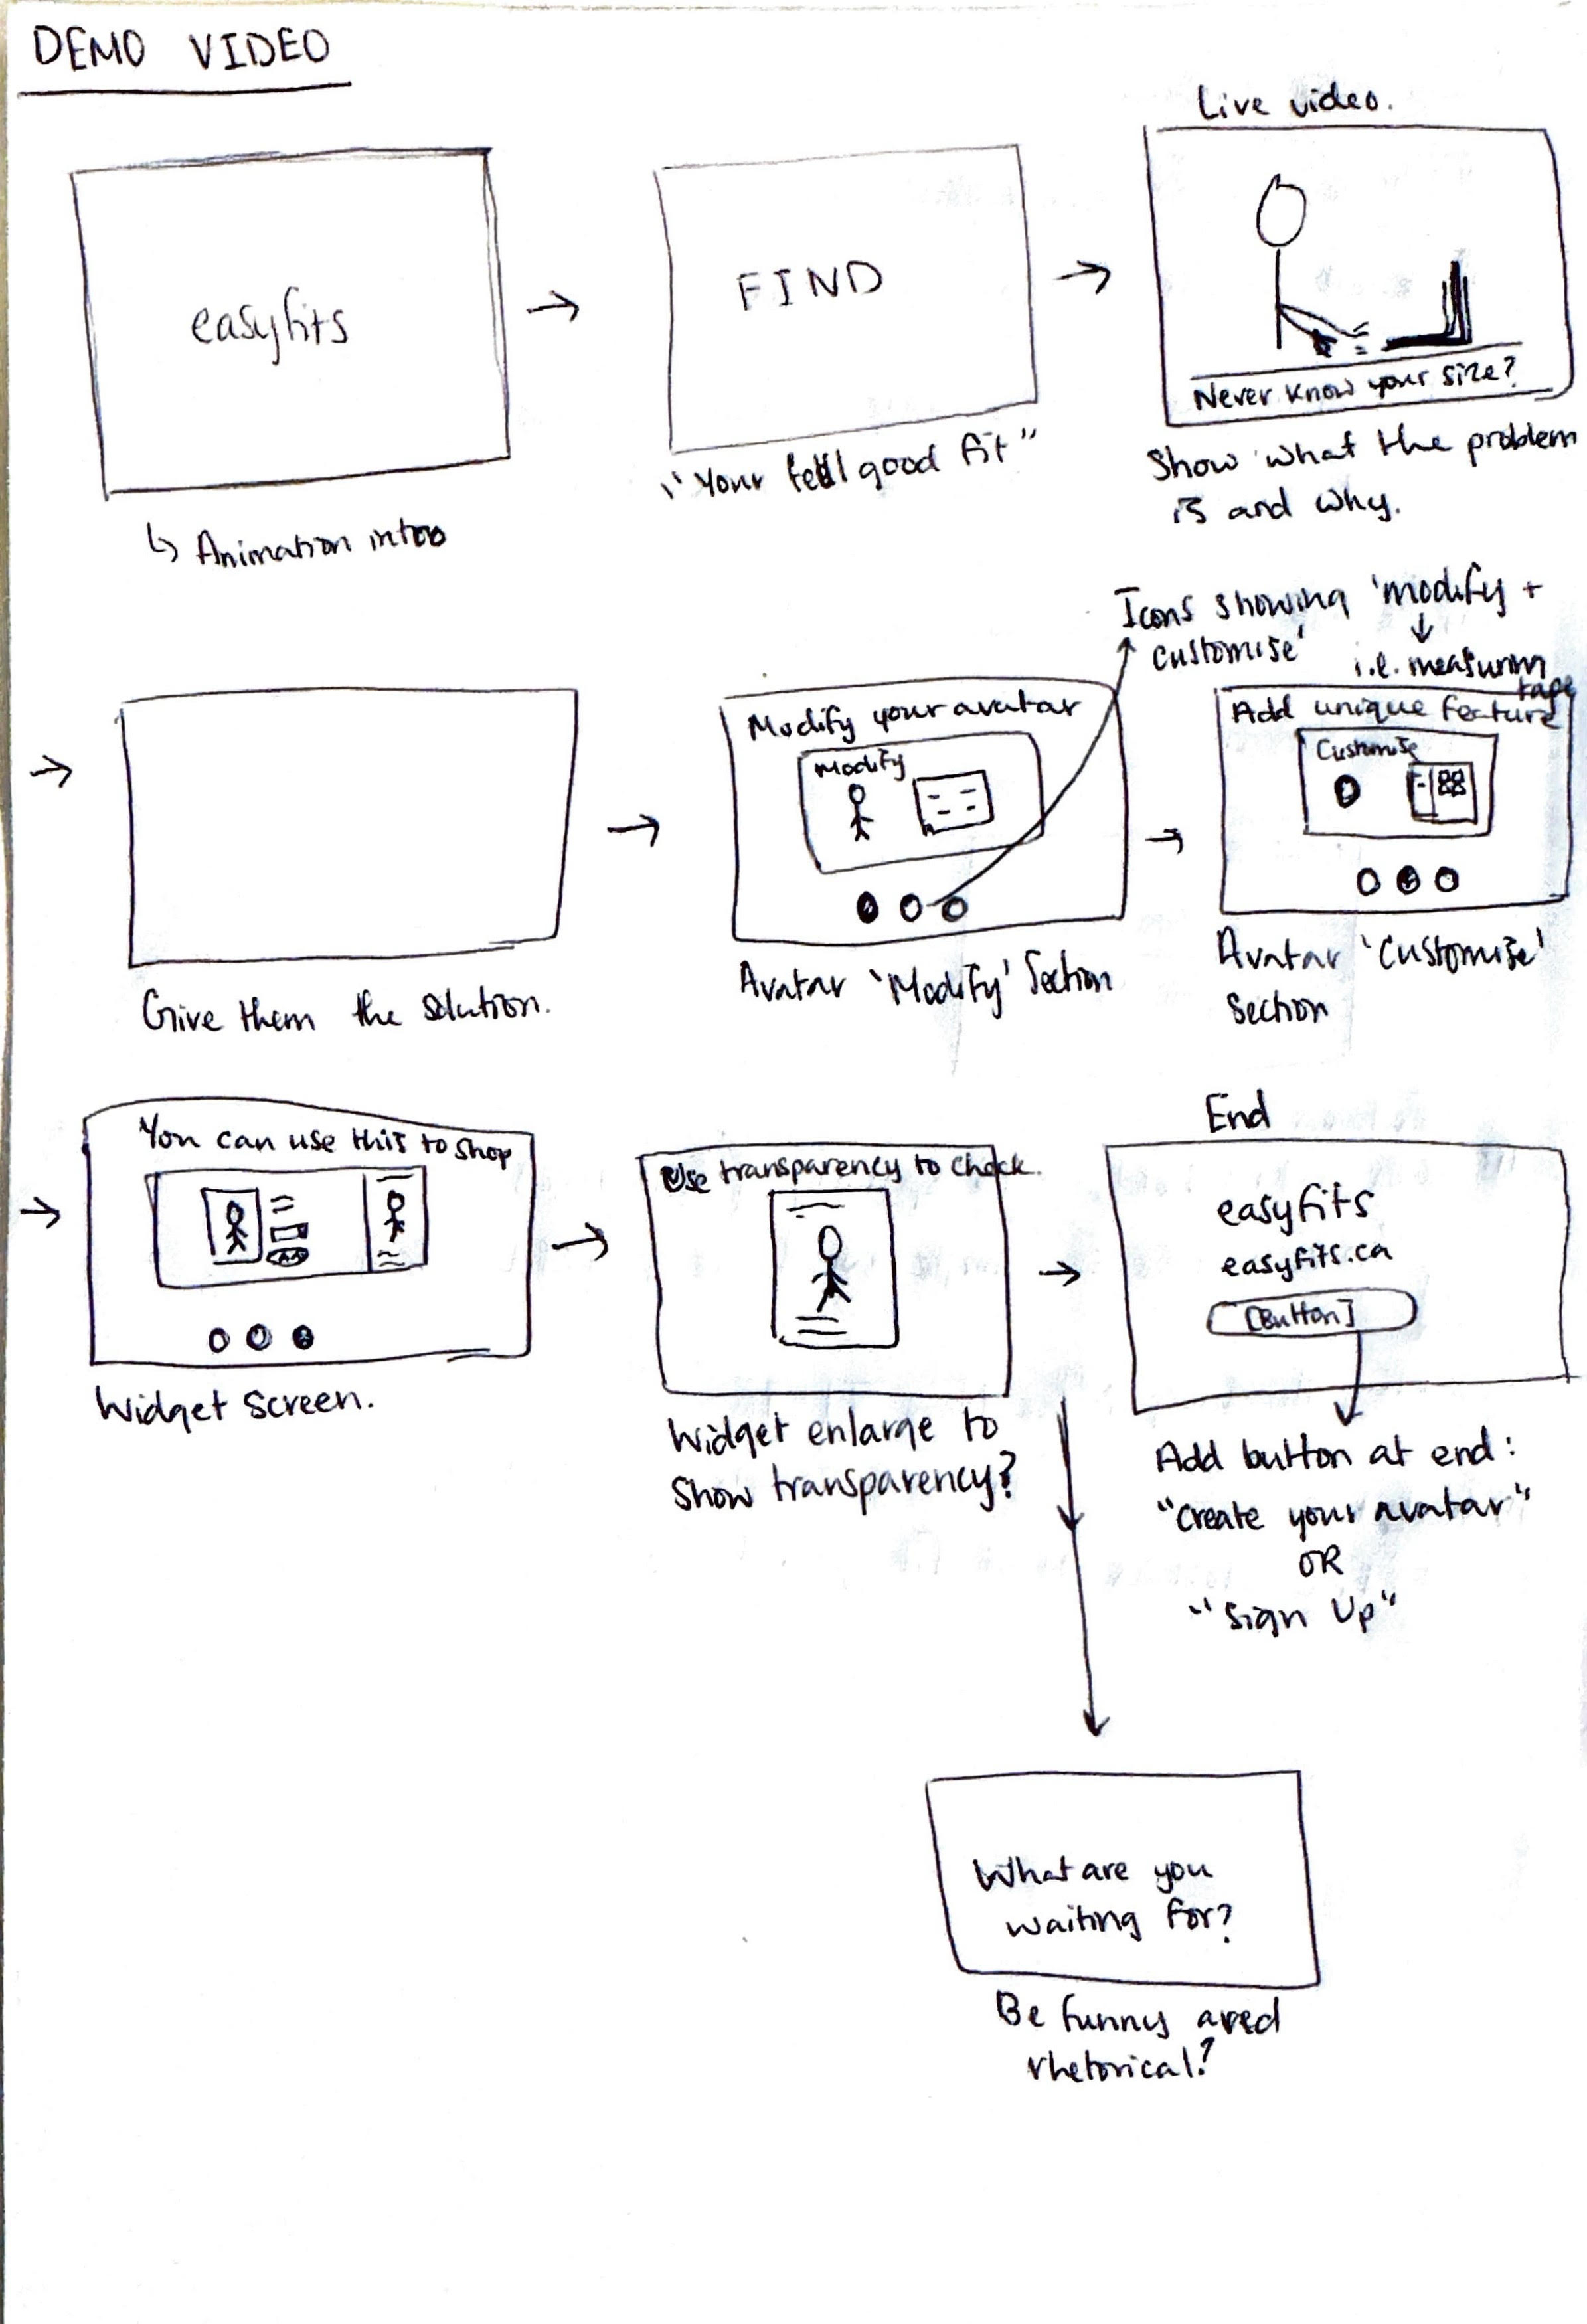 DEMO VIDEO
easyfits
↳ Animation intro
FIND
"Your feel good fit"
Live video.
Never know your size?
Show what the problem
is and why.
Give them the solution.
Icons showing 'modify +
customise'
i.e. measuring
tape
Modify your avatar
Modify
Avatar 'Modify' Section
Add unique feature
Customise
Avatar 'Customise'
Section
You can use this to shop
Widget Screen.
Use transparency to check.
Widget enlarge to
Show transparency?
End
easyfits
easyfits.ca
[Button]
Add button at end:
"Create your avatar"
OR
"Sign Up"
What are you
waiting for?
Be funny and
rhetorical?